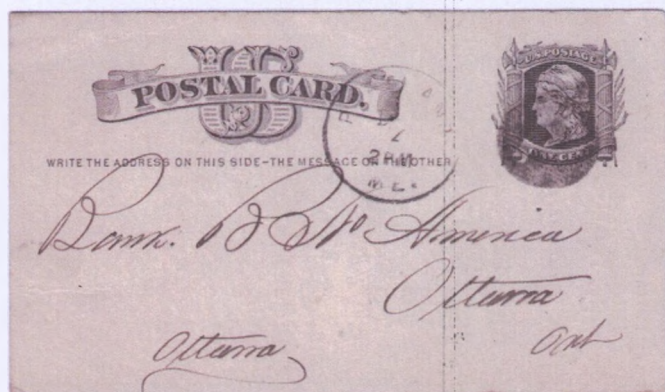 US
POSTAL CARD.
U.S. POSTAGE
ONE CENT
WRITE THE ADDRESS ON THIS SIDE—THE MESSAGE ON THE OTHER
2 PM
ME.
Bank. B. No America
Ottawa
Ottawa
Ont